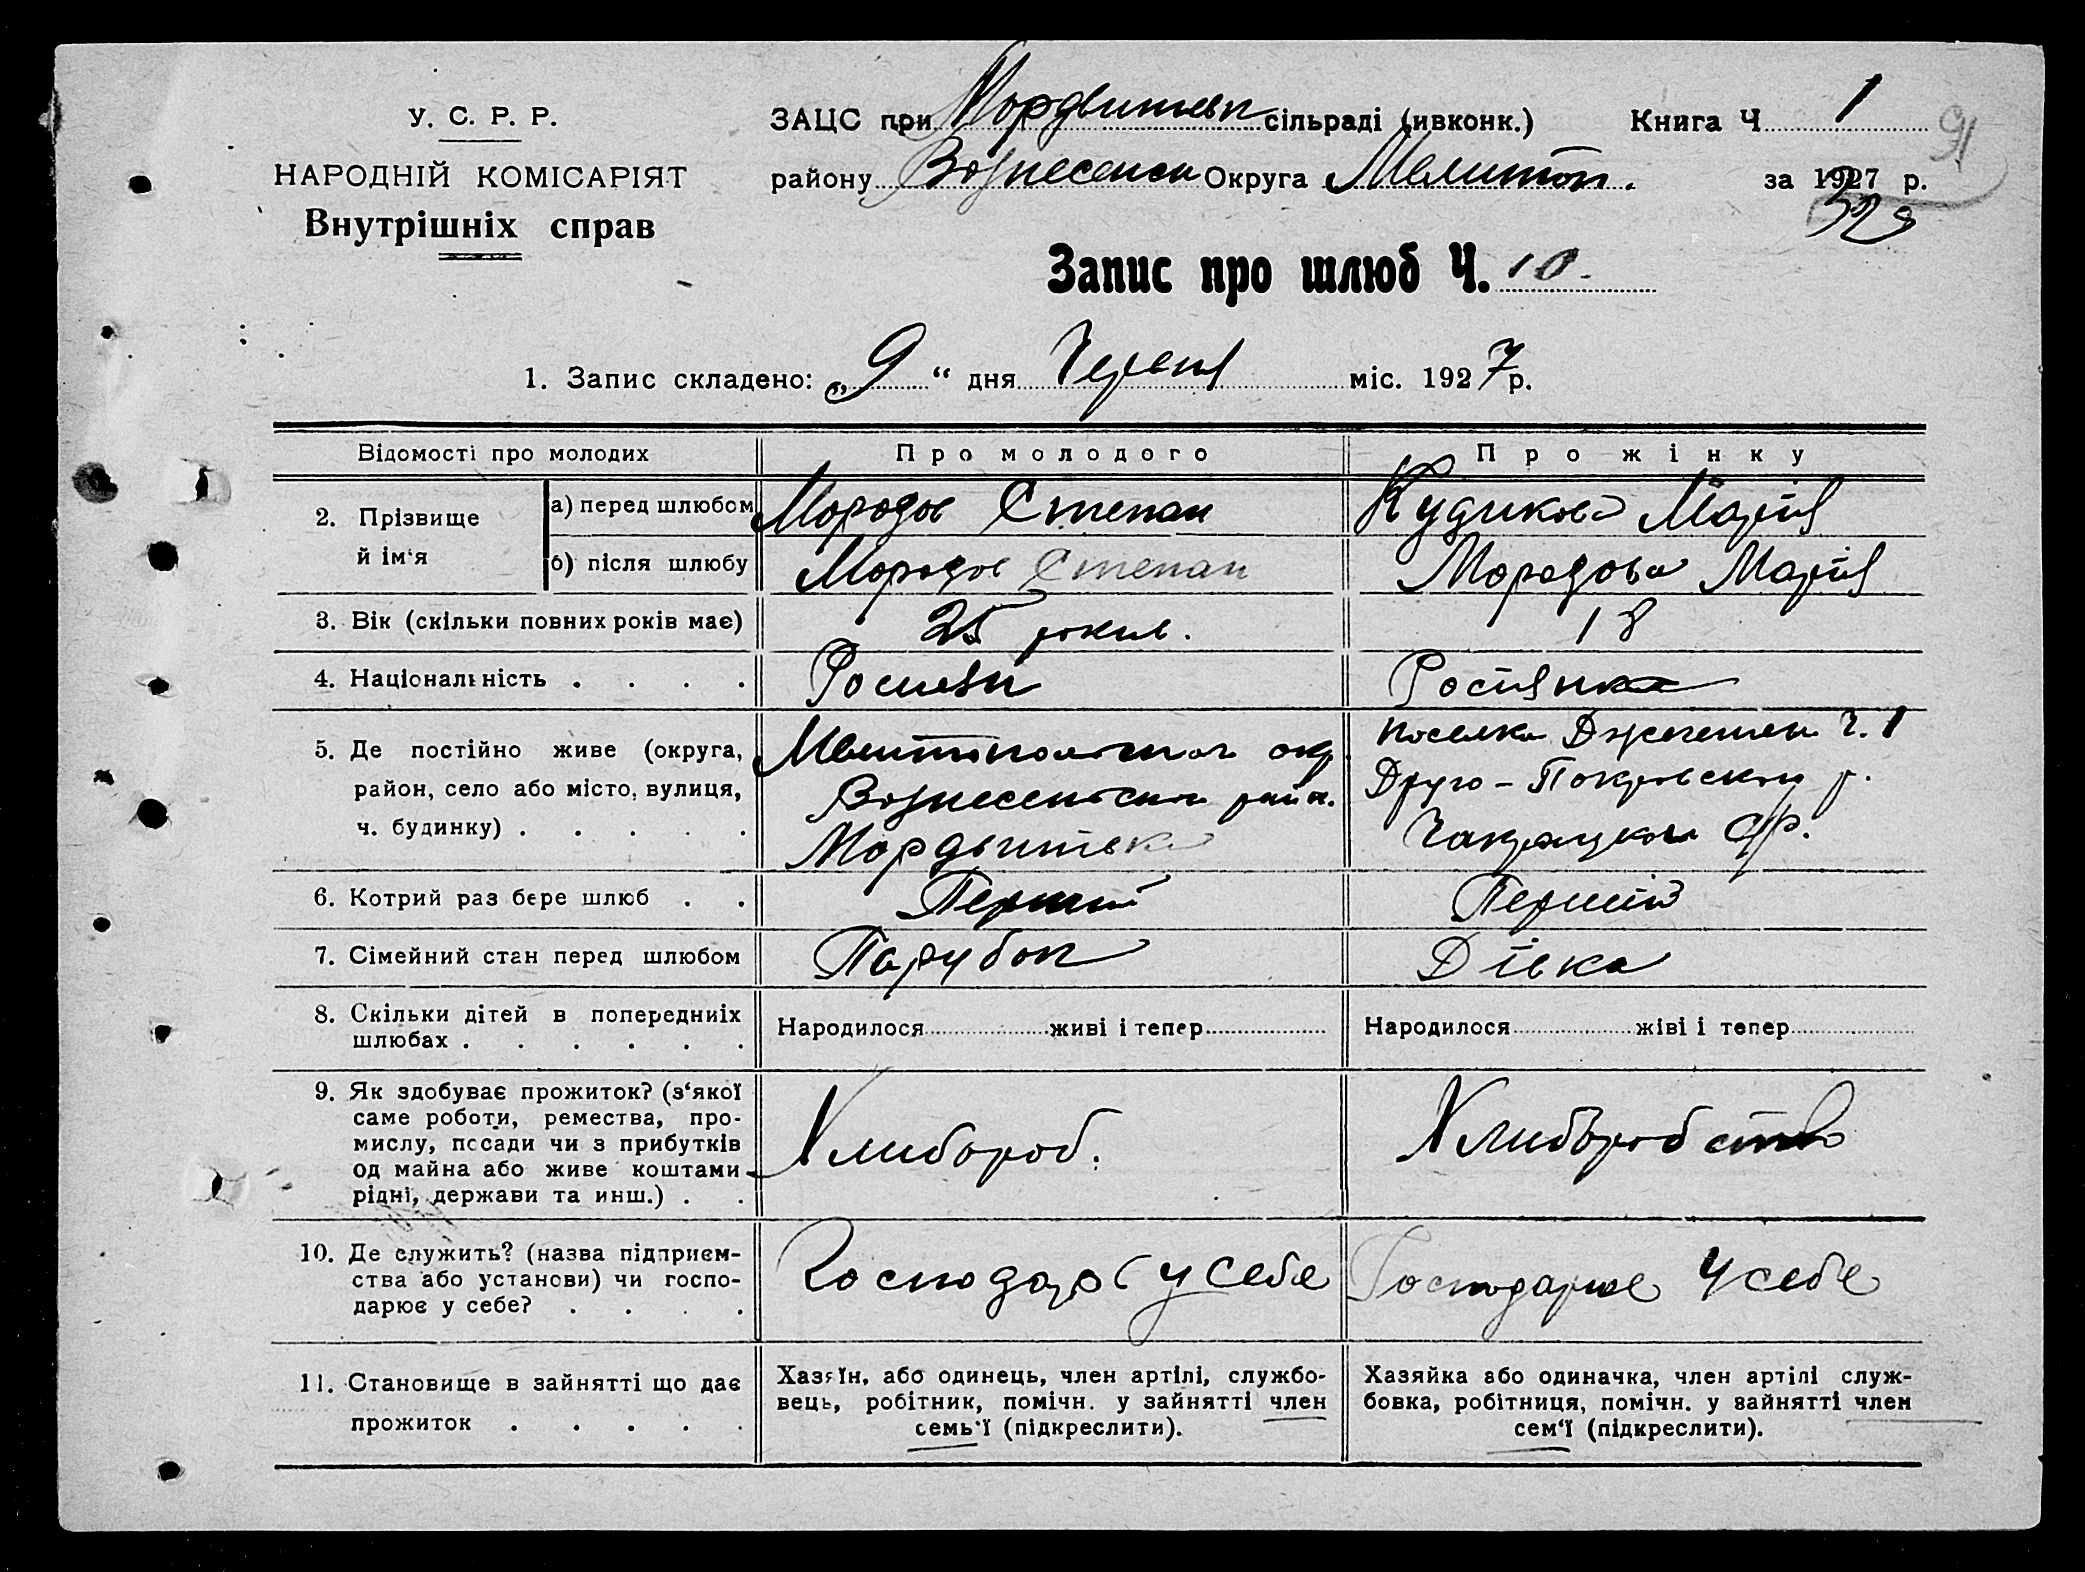 У. С. Р. Р.
НАРОДНІЙ КОМІСАРІЯТ
Внутрішніх справ
ЗАЦС при Мордвитівк сільраді (ивконк.) Книга Ч 1
91
району Вознесенск Округа Мелитоп. за 1927 р.
328
Запис про шлюб Ч. 10.
1. Запис складено: „9“ дня Червня міс. 1927 р.
Відомості про молодих
Про молодого
Про жінку
2. Прізвище й ім'я
а) перед шлюбом
Мородов Степан
Кудикова Марія
б) після шлюбу
Мородов Степан
Мородова Марія
3. Вік (скільки повних років має)
25 років.
18
4. Національність . . . .
Росиян
Росіянка
5. Де постійно живе (округа,
район, село або місто, вулиця,
ч. будинку) . . . . .
Мелитопольской окр
Вознесенской район.
Мордвитівка
поселка Ч. 1
Друго-Покровской р.
6. Котрий раз бере шлюб . .
Перший
Перший
7. Сімейний стан перед шлюбом
Парубок
Дівка
8. Скільки дітей в попередниіх
шлюбах . . . . . .
Народилося живі і тепер
Народилося жіві і тепер
9. Як здобуває прожиток? (з'якої
саме роботи, ремества, про-
мислу, посади чи з прибутків
од майна або живе коштами
рідні, держави та инш.) . .
Хлибороб.
Хлиборобство
10. Де служить? (назва підприєм-
ства або установи) чи госпо-
дарює у себе? . . . .
Господарює у себе
Господарює у себе
11. Становище в зайнятті що дає
прожиток . . . . .
Хазяїн, або одинець, член артілі, службо-
вець, робітник, помічн. у зайнятті член
семь'ї (підкреслити).
Хазяйка або одиначка, член артілі служ-
бовка, робітниця, помічн. у зайнятті член
сем'ї (підкреслити).